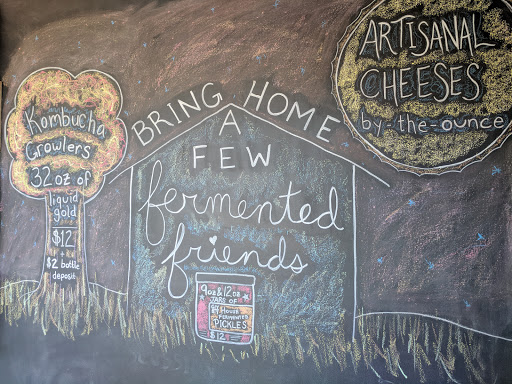 ARTISANAL
CHEESES
by-the-ounce
BRING HOME
A
FEW
fermented
friends
Kombucha
Growlers
32 oz of
liquid
gold
$12
+
$2 bottle
deposit
9oz & 12oz
JARS OF
HOUSE
FERMENTED
PICKLES
$12